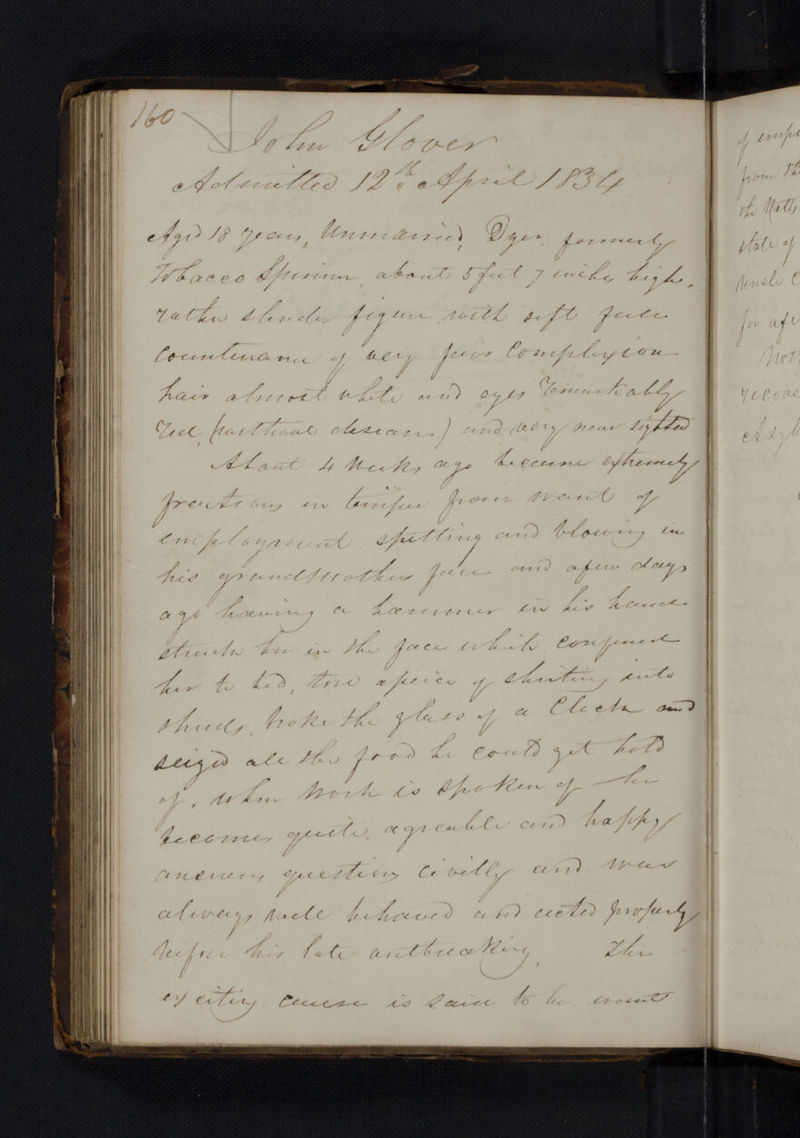 160
John Glover
Admitted 12th April 1834
Aged 18 years, Unmarried, Dyer, formerly
Tobacco Spinner, about 5 feet 7 inches high,
rather slender figure, with soft full
Countenance of very fair Complexion
hair almost white and eyes remarkably
red, ( disease) and very near sighted
About 4 Weeks ago became extremely
fractious in temper from want of
employment spitting and blowing in
his grandMothers face and afew days
ago having a hammer in his hand
struck her in the face which confined
her to bed, tore apeice of shirting into
shreds, broke the glass of a Clock and
seized all the food he could get hold
of, when Work is spoken of he
becomes quite agreable and happy
answers questions Civilly and was
always well behaved and acted properly
before his late outbreaking, The
exciting cause is said to be want
of empl
from th
the
state of
Uncle C
for afe
Not
recove
Asyl